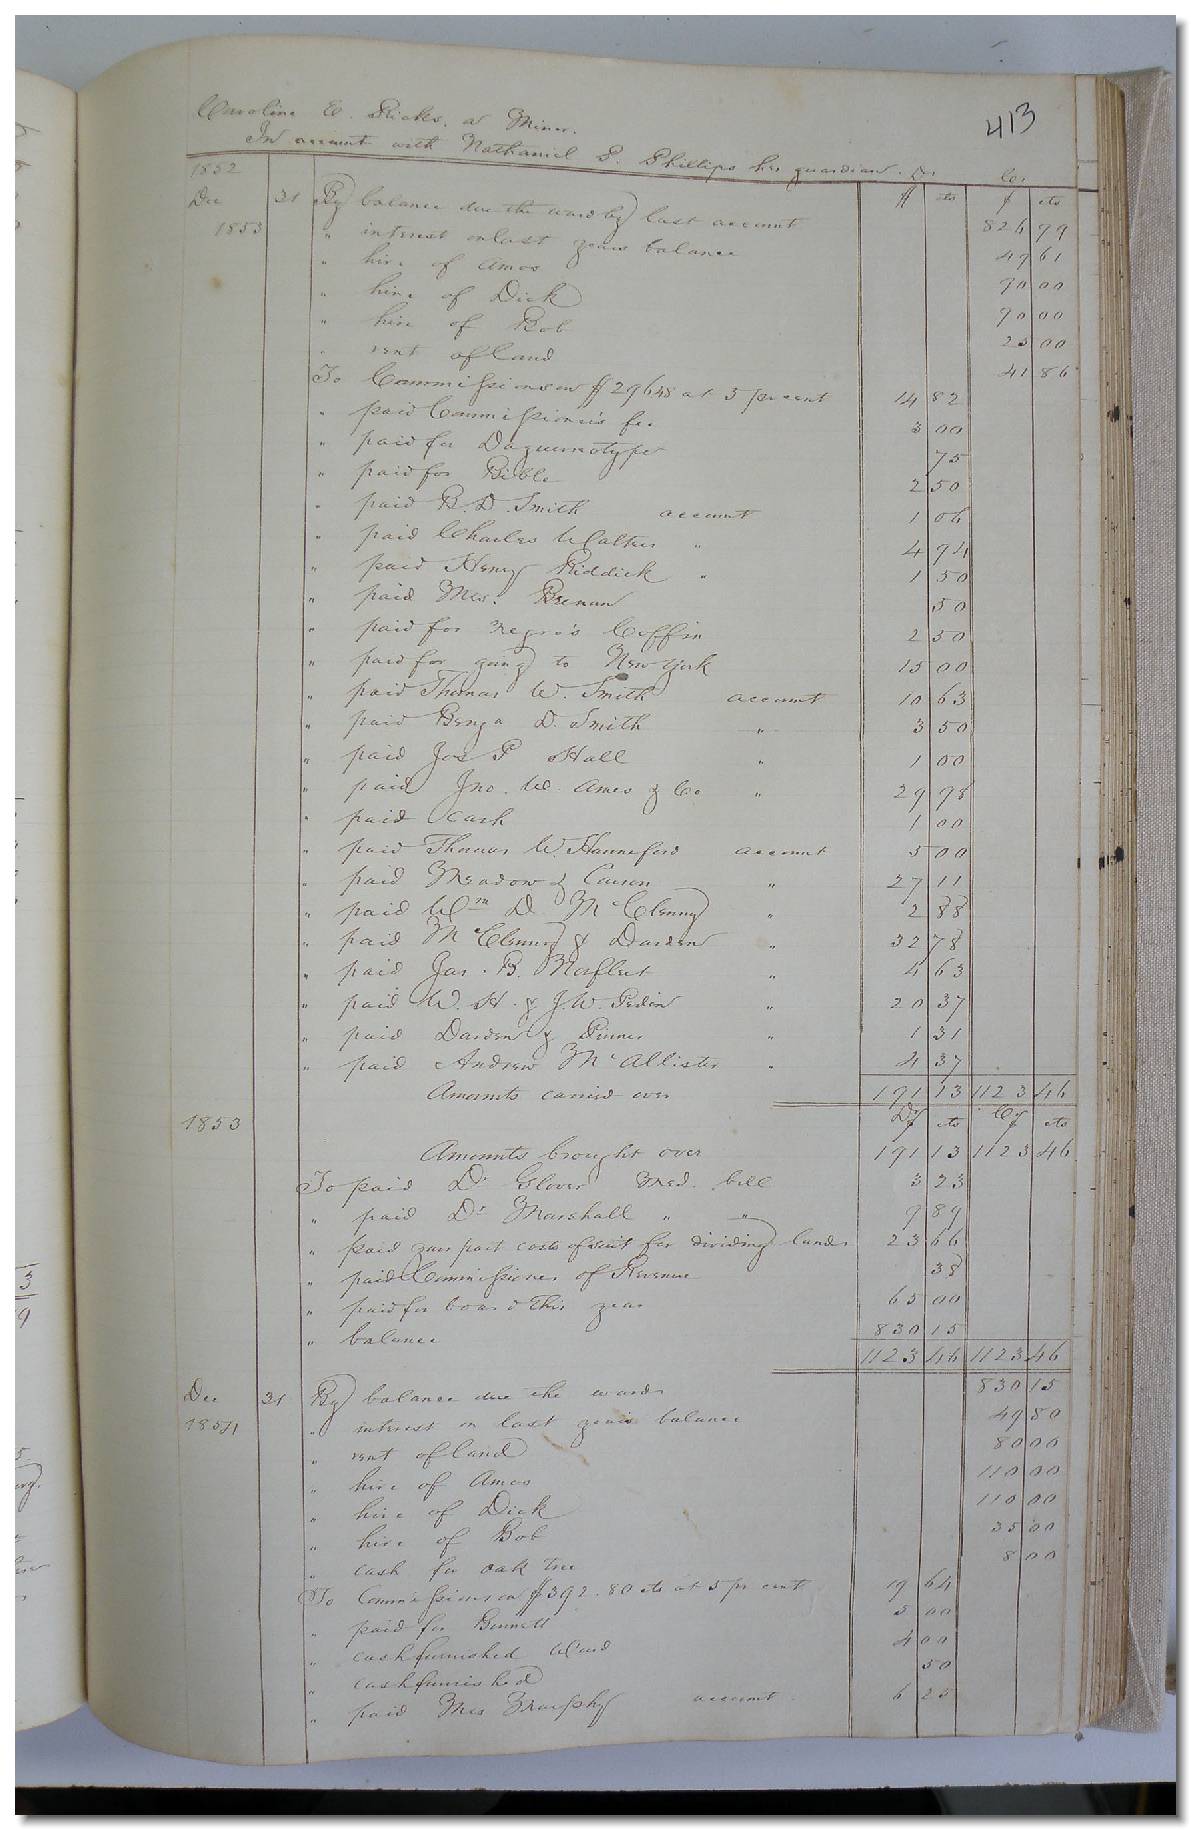 413
Caroline E. Ricks, a Minor.
In account with Nathaniel P. Phillips her guardian. Dr Cr
1852 $ cts $ cts
Dec 31 By balance due the ward by last account 826 99
1853 " interest on last years balance 49 61
" hire of Amos 90 00
" hire of Dick 90 00
" hire of Bob 25 00
" rent of land 41 86
To Commissions on $296 48 at 5 per cent 14 82
" paid Commissioner's fee 3 00
" paid for Daguerrotype 75
" paid for Bible 2 50
" paid B. D. Smith account 1 06
" paid Charles Walker " 4 94
" paid Henry Riddick " 1 50
" paid Mrs. 50
" paid for negro's Coffin 2 50
" paid for going to New York 15 00
" paid Thomas W. Smith account 10 63
" paid Benja D. Smith " 3 50
" paid Jos P Hall " 1 00
" paid Jno. W. Ames & Co " 29 98
" paid cash 1 00
" paid Thomas W. Hanneford account 5 00
" paid Meadow & " 27 11
" paid Wm D McClenny " 2 88
" paid McClenny & Darden " 32 78
" paid Jas. B. Norfleet " 4 63
" paid W. H. & J. W. " 20 37
" paid Darden & Pinner " 1 31
" paid Andrew McAllister " 4 37
Amounts carried over 191 13 1123 46
1853 Dr $ cts Cr $ cts
Amounts brought over 191 13 1123 46
To paid Dr Glover Med. bill 3 23
" paid Dr Marshall " " 9 89
" paid your part costs of suit for dividing lands 23 66
" paid Commissioner of Revenue 38
" paid for board this year 65 00
" balance 830 15
1123 46 1123 46
Dec 31 By balance due the ward 830 15
1854 " interest on last year's balance 49 80
" rent of land 80 00
" hire of Amos 110 00
" hire of Dick 110 00
" hire of Bob 35 00
" cash for oak tree 8 00
To Commissions on $392.80 cts at 5 pr cent 19 64
" paid for Bonnett 5 00
" cash furnished Ward 4 00
" cash furnished 50
" paid Mrs Murphy account 6 25